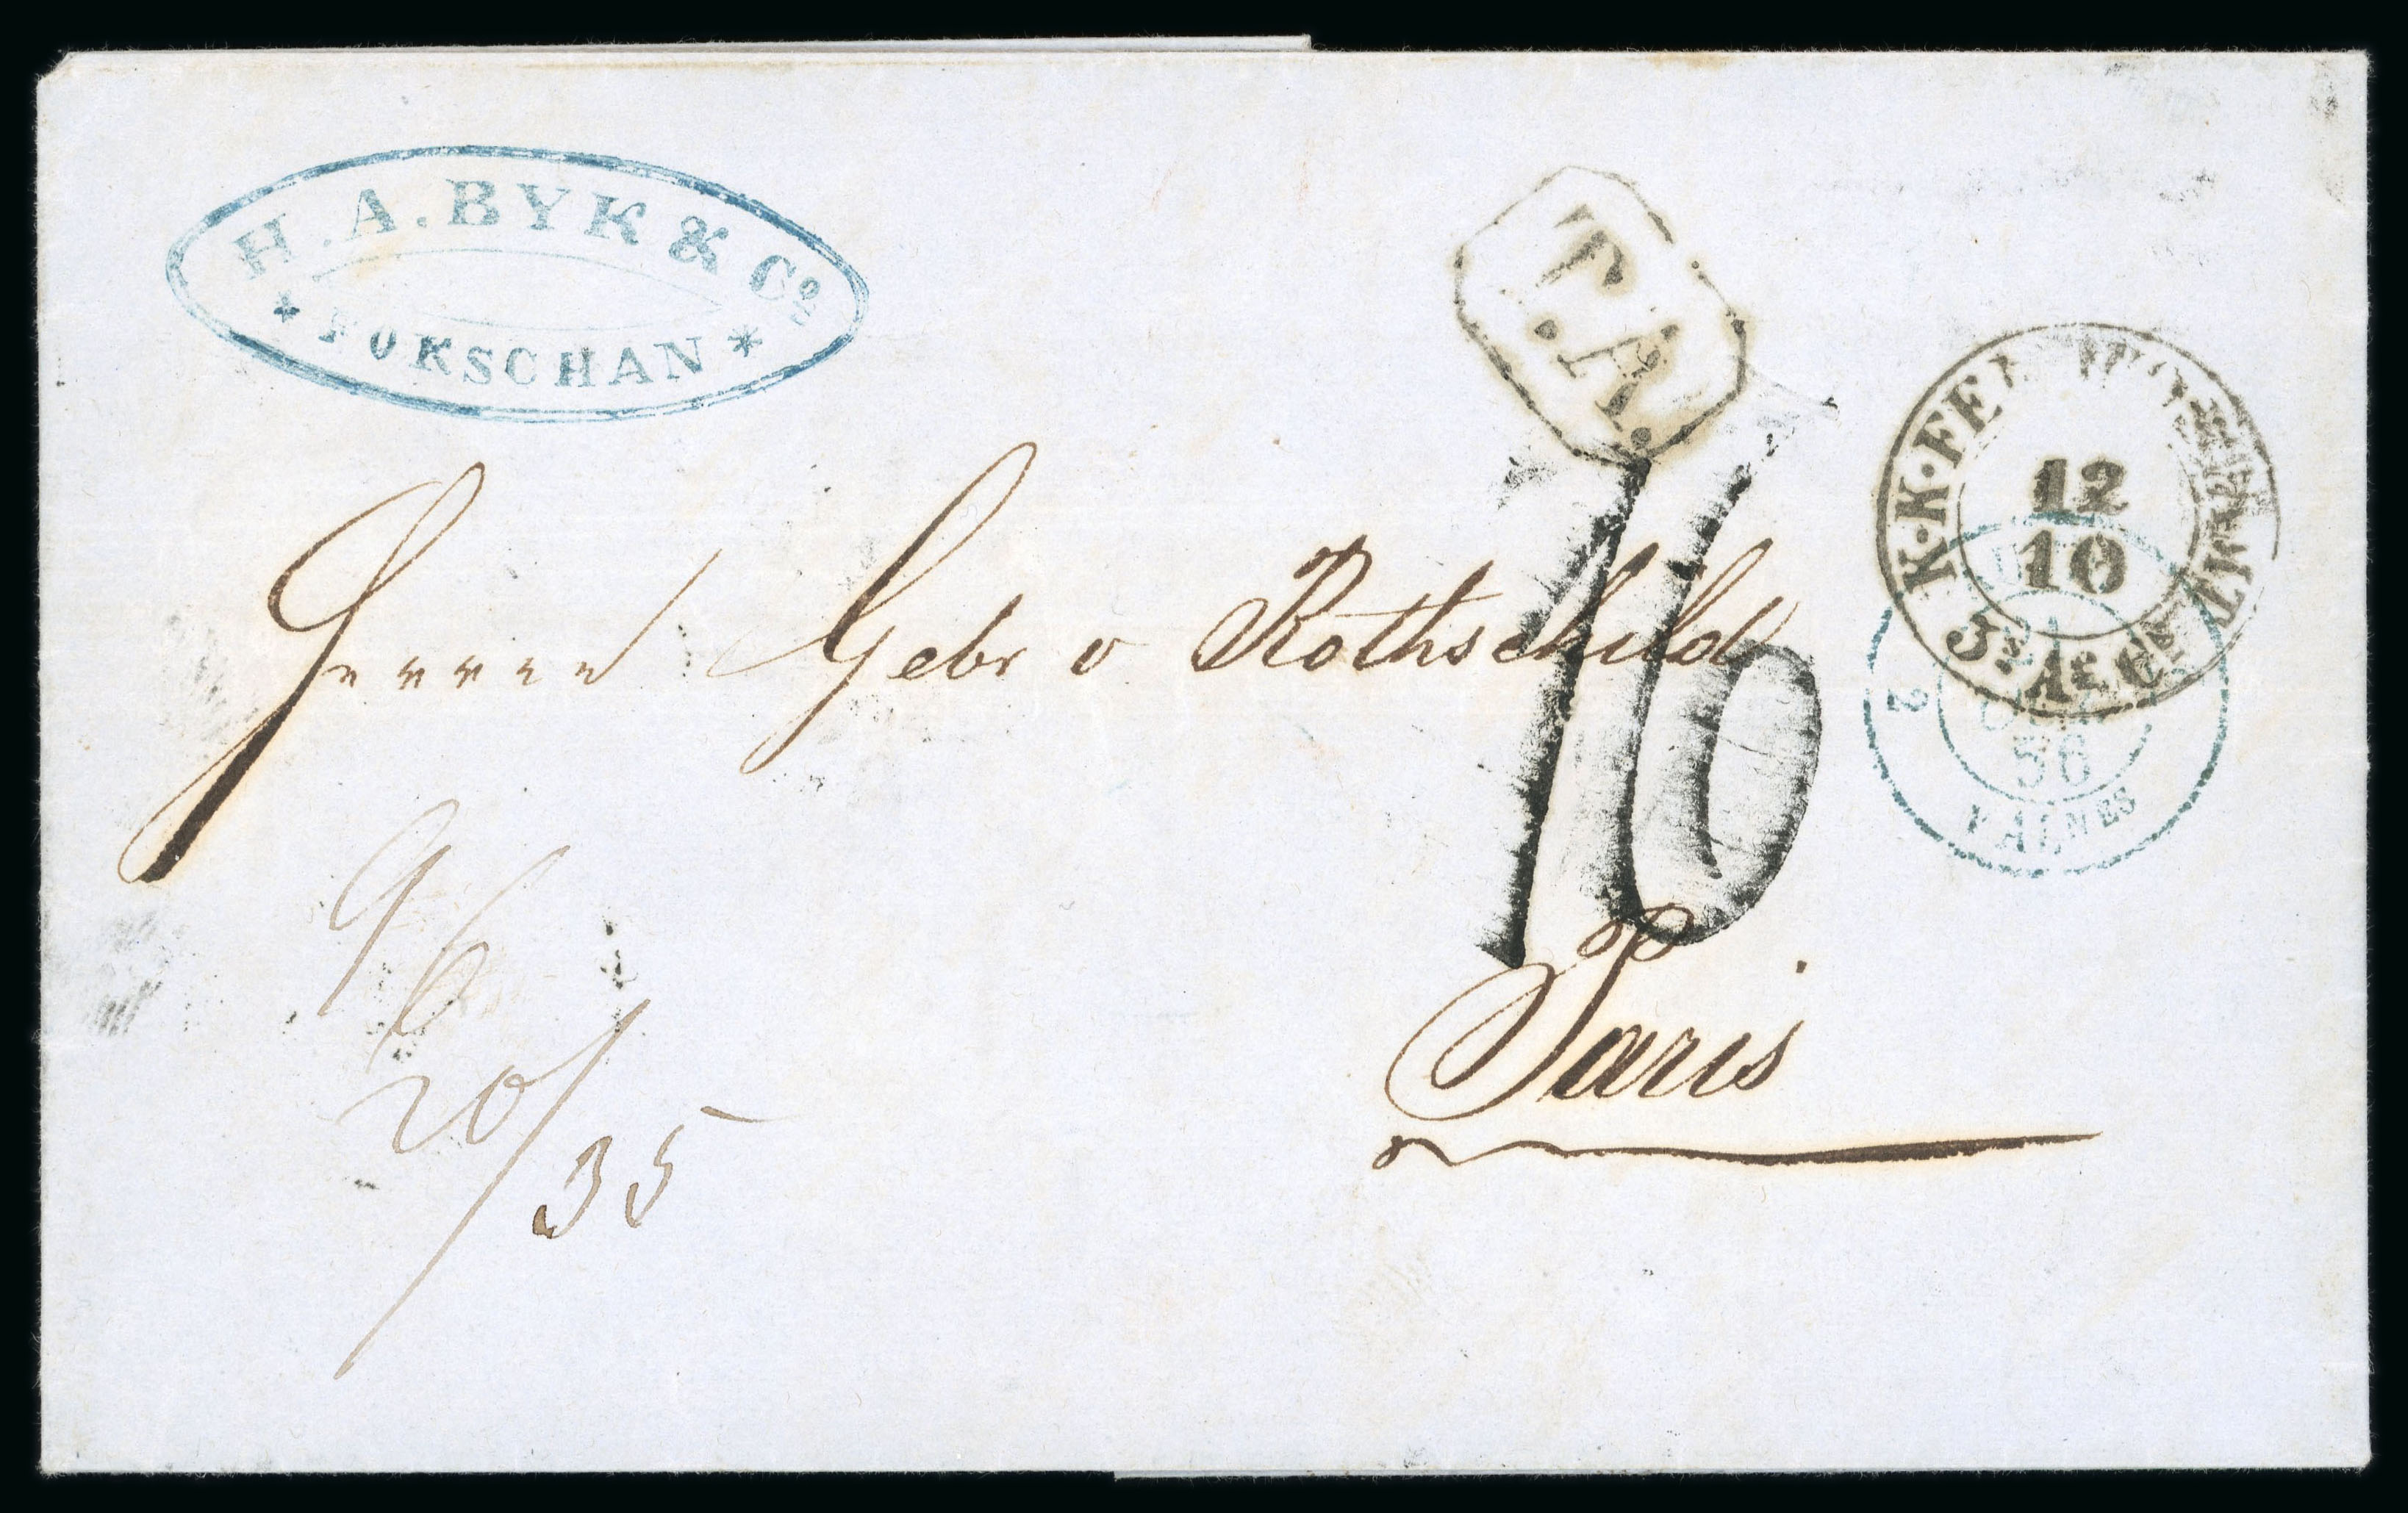 H. A. BYK & Cº
* FOKSCHAN *
T.A.
K.K.FE
12
10
16
2
56
VALNES
Herren Gebr v Rothschild
Paris
9/6
20/35